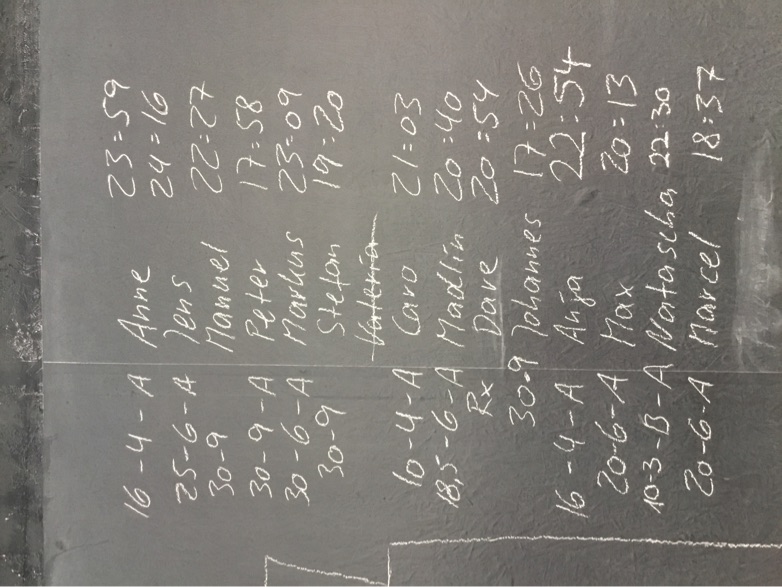 16-4-A Anne 23:59
25-6-A Jens 24:16
30-9 Manuel 22:27
30-9-A Peter 17:58
30-6-A Markus 23:09
30-9 Stefan 19:20
Valeria
10-4-A Caro 21:03
18,5-6-A Madlin 20:40
Rx Dave 20:54
30-9 Johannes 17:26
16-4-A Anja 22:54
20-6-A Max 20:13
10-3-B-A Natascha 22:30
20-6-A Marcel 18:37